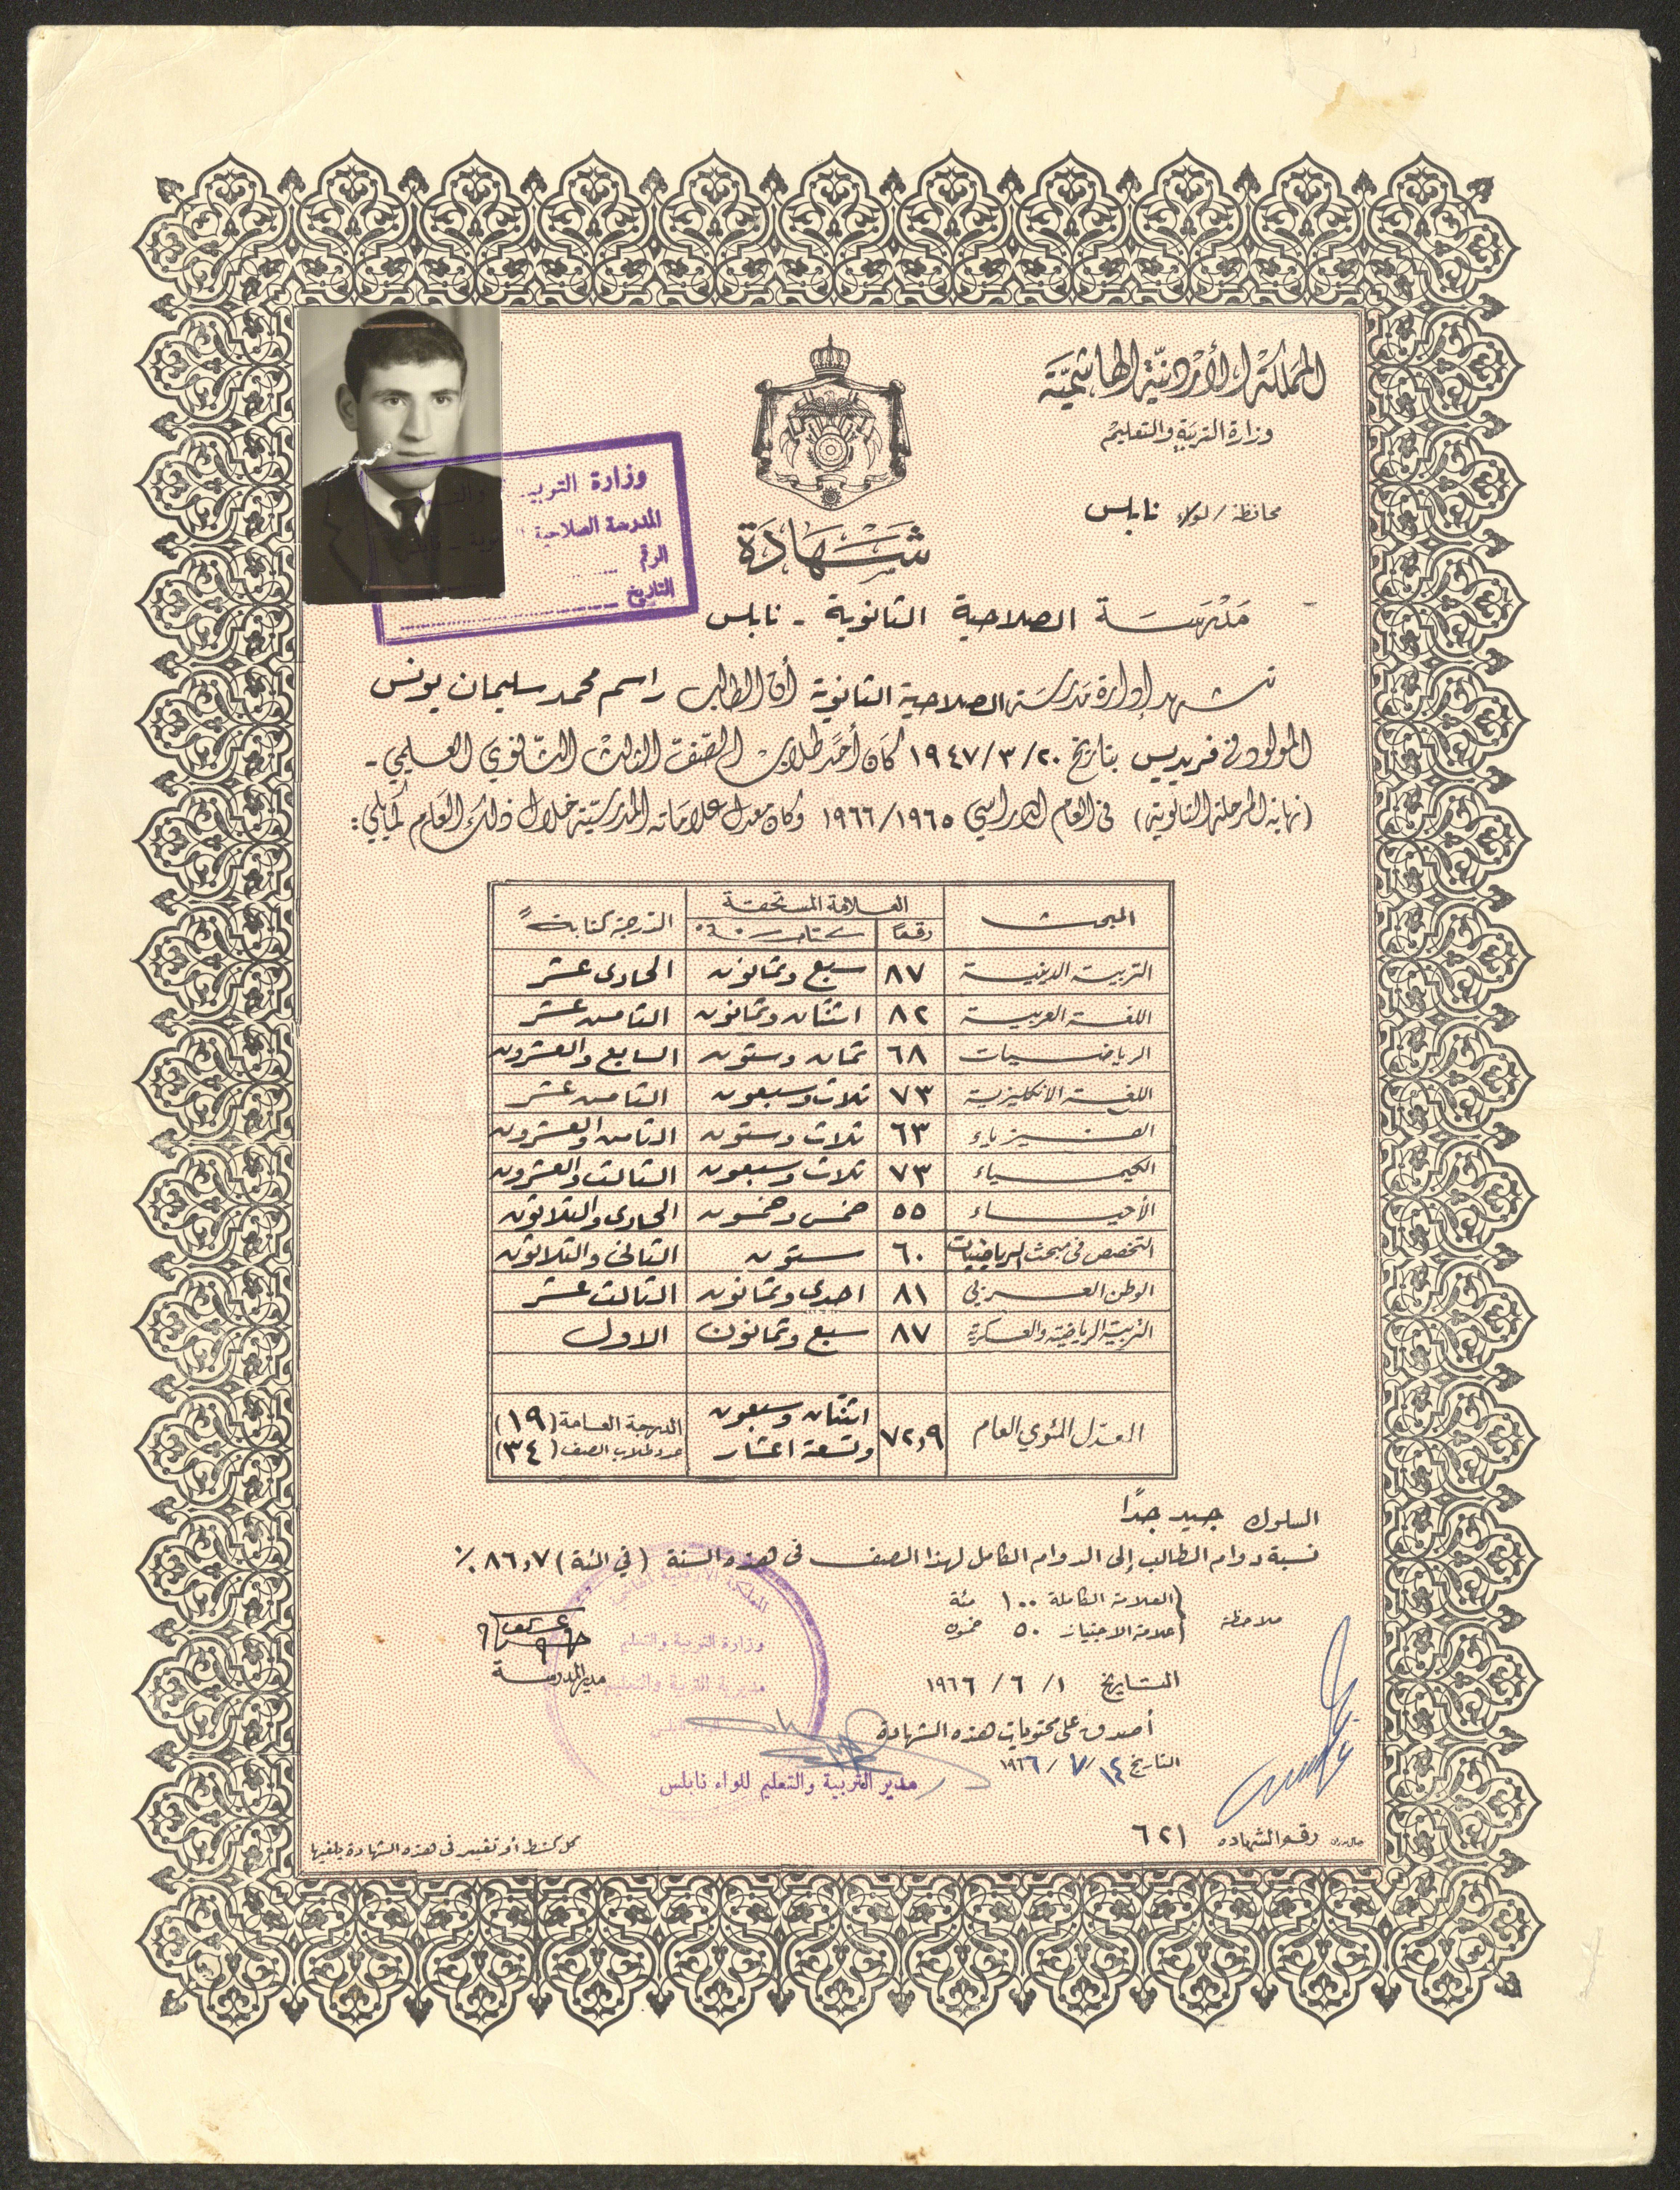 المملكة الأردنية الهاشمية
وزارة التربية والتعليم
محافظة / لواء نابلس
شهادة
وزارة التربية والتعليم
المدرسة الصلاحية
الرقم
التاريخ
مدرسة الصلاحية الثانوية - نابلس
تشهد إدارة مدرسة الصلاحية الثانوية أن الطالب راسم محمد سليمان يونس
المولود في فريديس بتاريخ ٢٠/٣/١٩٤٧ كان أحد طلاب الصف الثالث الثانوي العلمي -
(نهاية المرحلة الثانوية) في العام الدراسي ١٩٦٥/١٩٦٦ وكان معدل علاماته المدرسية خلال ذلك العام كما يلي:
المبحث العلامة المستحقة الدرجة كتابةً
رقمًا كتابة
التربية الدينية ٨٧ سبع وثمانون الحادي عشر
اللغة العربية ٨٢ اثنتان وثمانون الثامن عشر
الرياضيات ٦٨ ثمان وستون السابع والعشرون
اللغة الانكليزية ٧٣ ثلاث وسبعون الثامن عشر
الفيزياء ٦٣ ثلاث وستون الثامن والعشرون
الكيمياء ٧٣ ثلاث وسبعون الثالث والعشرون
الأحياء ٥٥ خمس وخمسون الحادي والثلاثون
التخصص في مبحث الرياضيات ٦٠ ستون الثاني والثلاثون
الوطن العربي ٨١ احدى وثمانون الثالث عشر
التربية الرياضية والعسكرية ٨٧ سبع وثمانون الاول
المعدل المئوي العام ٧٢٫٩ اثنتان وسبعون وتسعة اعشار الدرجة العامة (١٩)
عدد طلاب الصف (٣٤)
السلوك جيد جدًا
نسبة دوام الطالب إلى الدوام الكامل لهذا الصف في هذه السنة (في المئة) ٨٦٫٧ ٪
ملاحظة العلامة الكاملة ١٠٠ مئة
علامة الاجتياز ٥٠ خمسون
المملكة الأردنية الهاشمية
وزارة التربية والتعليم
مديرية التربية والتعليم
مدير المدرسة
التاريخ ١ / ٦ / ١٩٦٦
أصدق على محتويات هذه الشهادة
التاريخ ١٤ / ٧ / ١٩٦٦
مدير التربية والتعليم للواء نابلس
رقم الشهادة ٦٢١
كل كشط أو تغيير في هذه الشهادة يلغيها